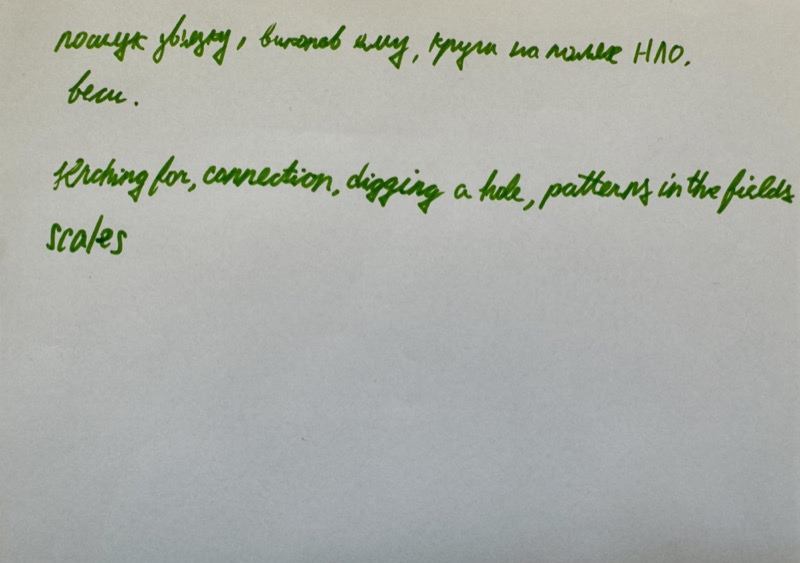 пошук звязку, викопав яму, круги на полях НЛО.
веси.
serching for, connection, digging a hole, patterns in the fields
scales